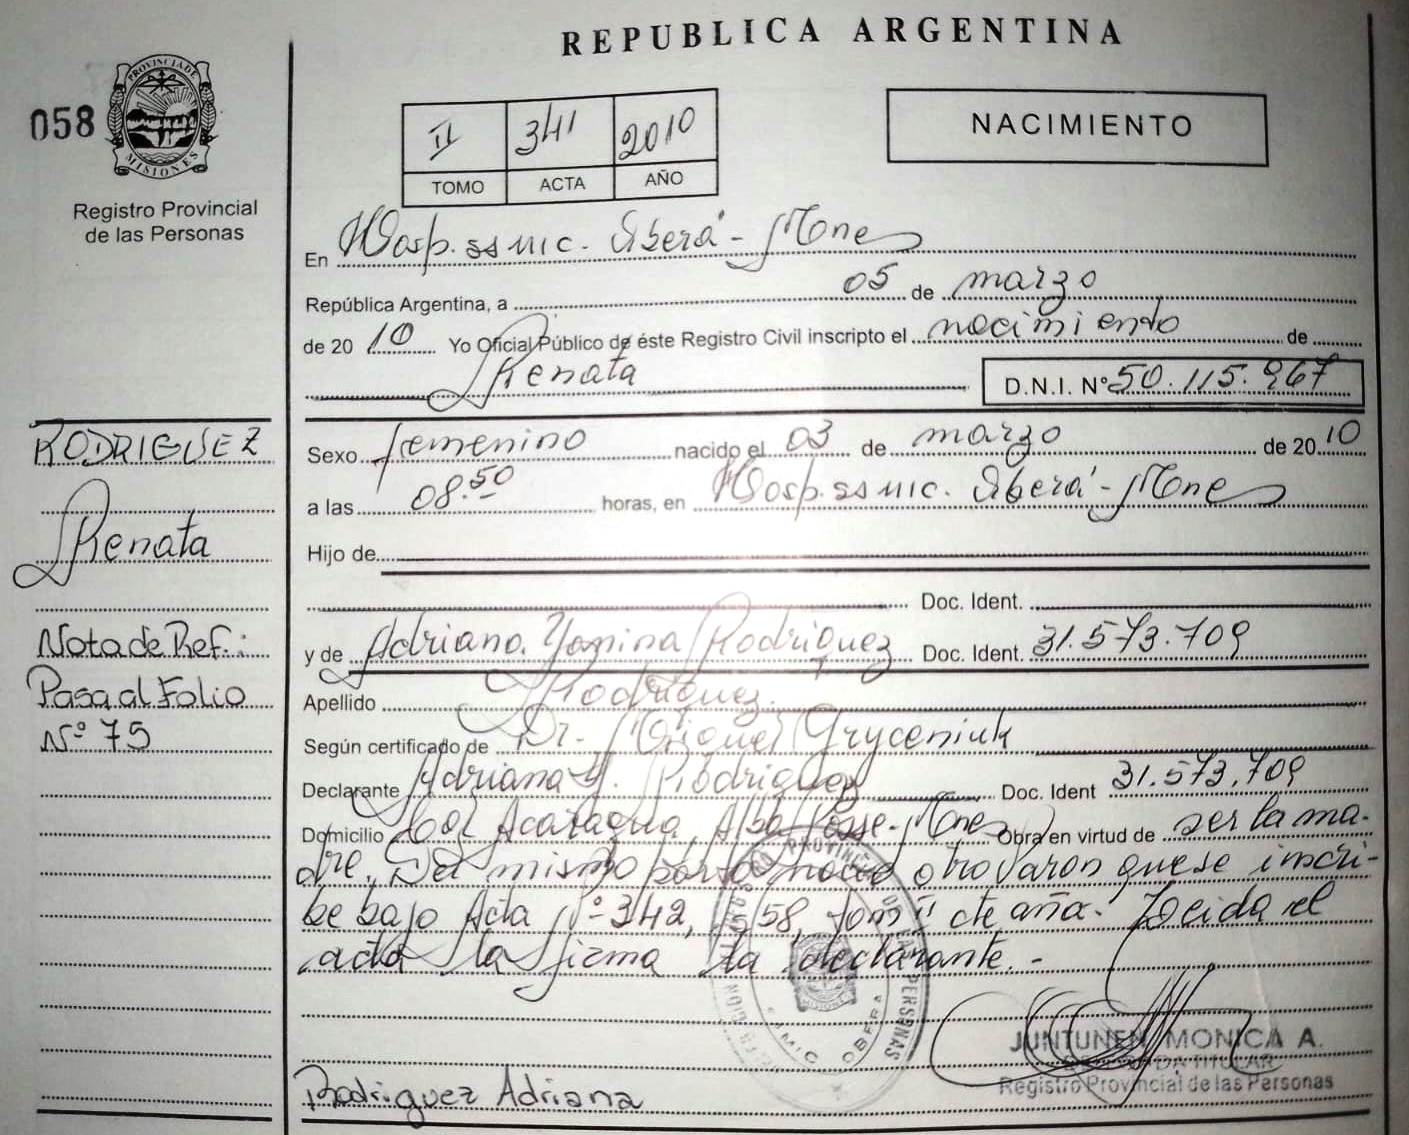 REPUBLICA ARGENTINA
058
PROVINCIA DE
MISIONES
Registro Provincial
de las Personas
II 341 2010
TOMO ACTA AÑO
NACIMIENTO
En Hosp. ss mic. Oberá - Mnes
República Argentina, a 05 de marzo
de 20 10 Yo Oficial Público de éste Registro Civil inscripto el nacimiento de
Renata D.N.I. Nº 50.115.967
RODRIGUEZ
Renata
Nota de Ref.:
Pasa al Folio
Nº 75
Sexo femenino nacido el 03 de marzo de 20 10
a las 08.50 horas, en Hosp. ss mic. Oberá - Mnes
Hijo de
Doc. Ident.
y de Adriana Yanina Rodriguez Doc. Ident. 31.573.709
Apellido Rodriguez.
Según certificado de Dr. Miguel Gryceniuk
Declarante Adriana Y. Rodriguez Doc. Ident 31.573.709
Domicilio Col Acaragua, Alba Posse - Mnes Obra en virtud de ser la ma-
dre. Del mismo parto nació otro varon que se inscri-
be bajo Acta Nº 342, 58, tom II cte año. Leida el
acta la firma la declarante. -
JUNTUNEN MONICA A.
TITULAR
Registro Provincial de las Personas
OBERA
Rodriguez Adriana